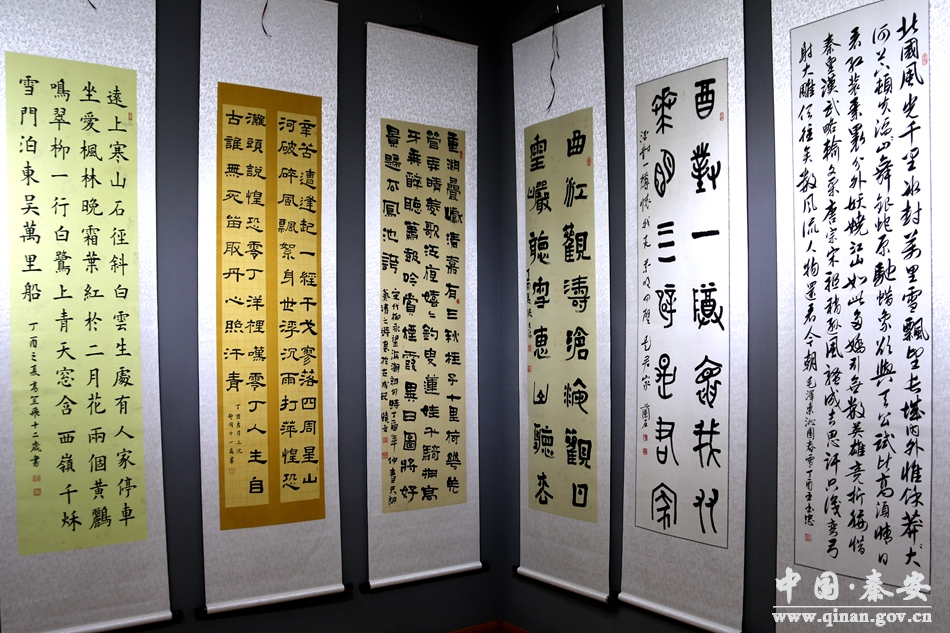 北國風光千里冰封萬里雪飄望長城內外惟餘莽莽大
河上下頓失滔滔山舞銀蛇原馳蠟象欲與天公試比高須晴日
看紅裝素裹分外妖嬈江山如此多嬌引無數英雄競折腰惜
秦皇漢武略輸文采唐宗宋祖稍遜風騷成吉思汗只識彎弓
射大雕俱往矣數風流人物還看今朝 毛澤東沁園春雪丁酉
對一
三
曲江觀濤滄觀日
靈巖聽雪惠山聽松
重湖疊巘清嘉有三秋桂子十里荷花羌
管弄晴菱歌泛夜嬉嬉釣叟蓮娃千騎擁高
牙乘醉聽簫鼓吟賞煙霞異日圖將好
景歸去鳳池誇
宋代柳永望海潮丁酉年仲春
辛苦遭逢起一經干戈寥落四周星山
河破碎風飄絮身世浮沉雨打萍惶恐
灘頭說惶恐零丁洋裡嘆零丁人生自
古誰無死留取丹心照汗青
丁酉
十一歲書
遠上寒山石徑斜白雲生處有人家停車
坐愛楓林晚霜葉紅於二月花兩個黃鸝
鳴翠柳一行白鷺上青天窓含西嶺千秌
雪門泊東吳萬里船
丁酉之夏十二歲書
中国·秦安
www.qinan.gov.cn